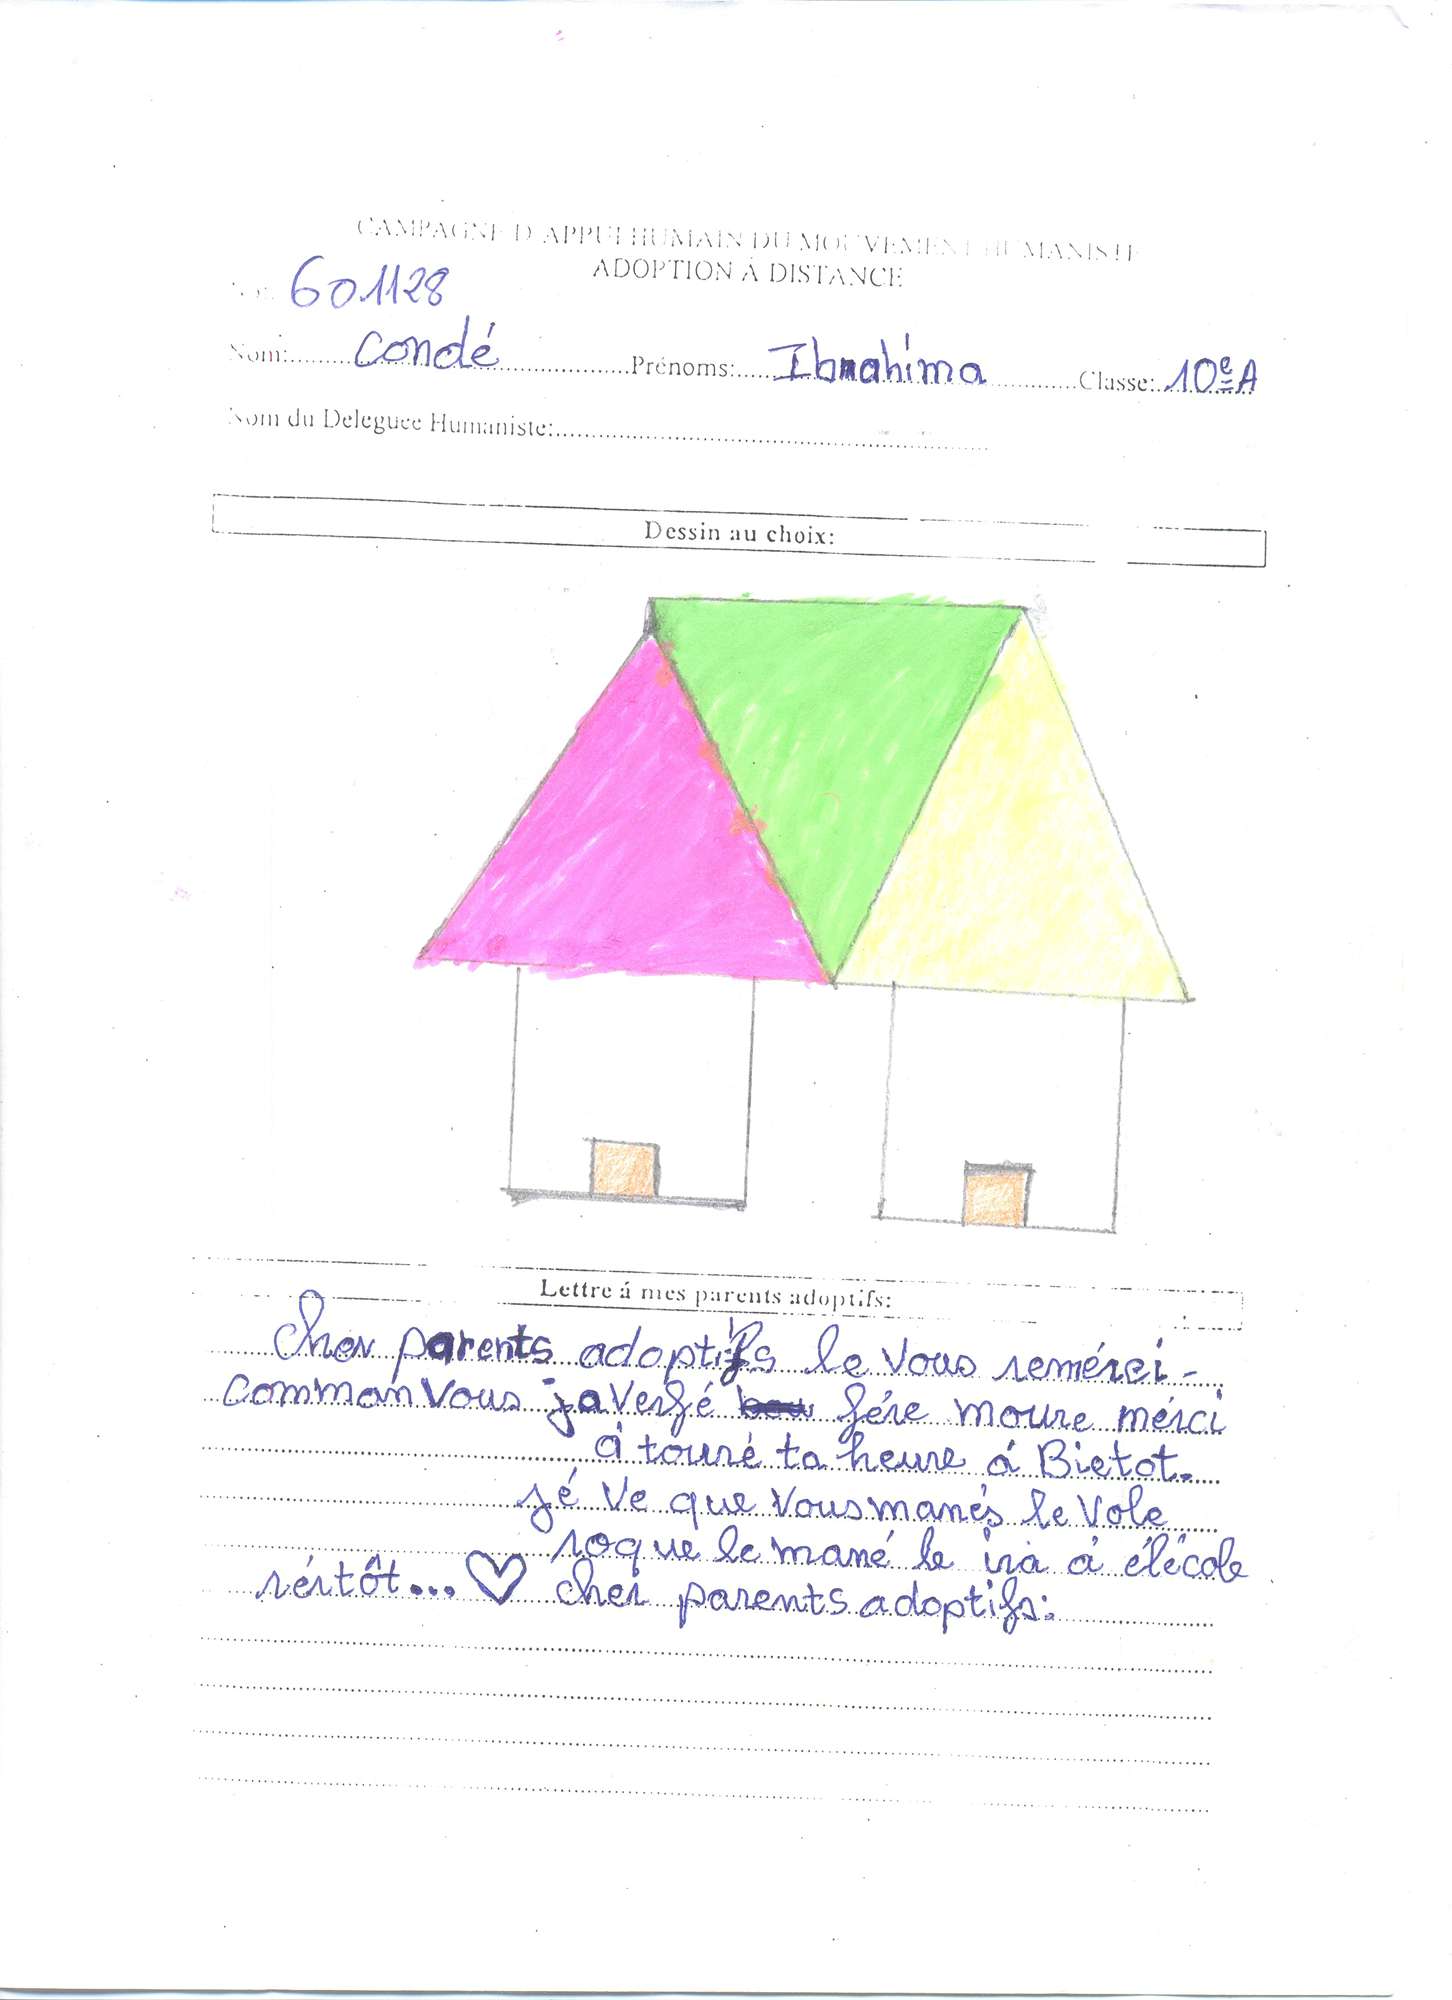 CAMPAGNE D'APPUI HUMAIN DU MOUVEMENT HUMANISTE
ADOPTION Á DISTANCE
601128
Nom: Condé Prénoms: Ibrahima Classe: 10e A
Nom du Deleguee Humaniste:
Dessin au choix:
Lettre á mes parents adoptifs:
cher parents adoptifs le vous remérci-
comman vous javerfé fére moure mérci
á touré ta heure á Bietot.
jé ve que vous manés le vole
roque le mané le ira á élécole
rértôt... cher parents adoptifs: